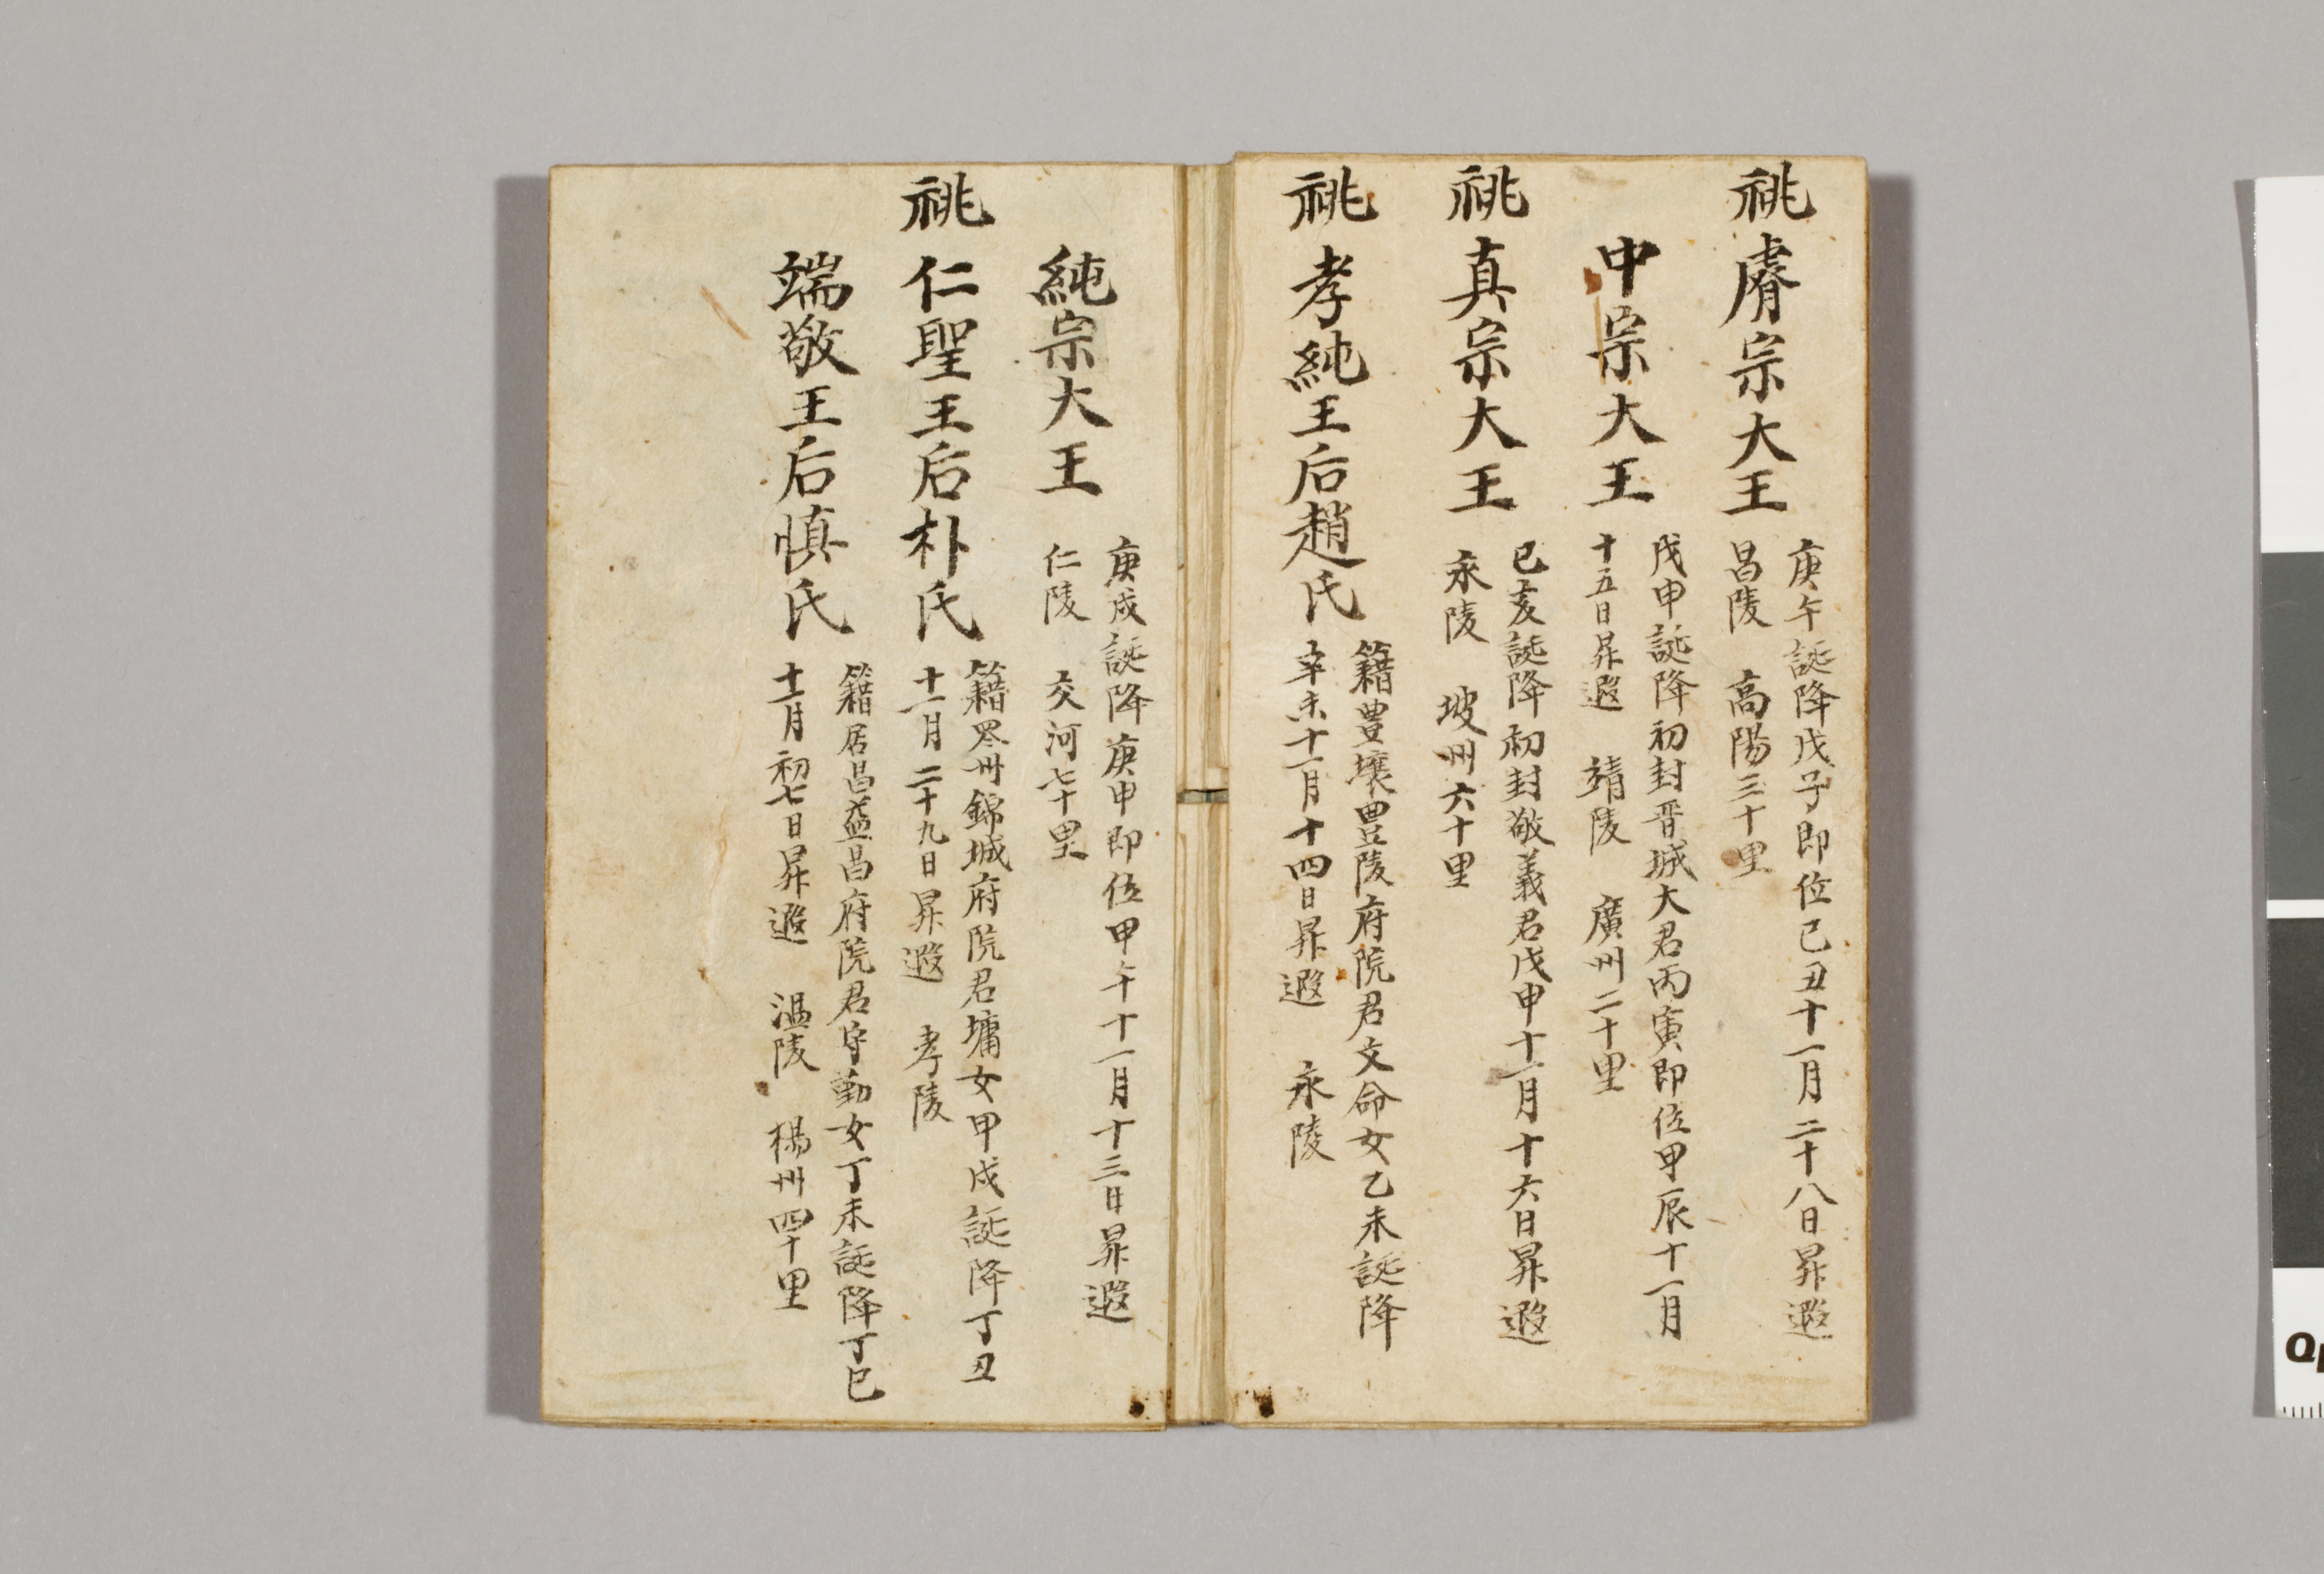 祧 睿宗大王
庚午誕降戊子即位己丑十一月二十八日昇遐
昌陵 高陽三十里
中宗大王
戊申誕降初封晋城大君丙寅即位甲辰十一月
十五日昇遐 靖陵 廣州二十里
祧 真宗大王
己亥誕降初封敬義君戊申十一月十六日昇遐
永陵 坡州六十里
祧 孝純王后趙氏
籍豊壤豊陵府院君文命女乙未誕降
辛未十一月十四日昇遐 永陵
純宗大王
庚戌誕降庚申即位甲午十一月十三日昇遐
仁陵 交河七十里
祧 仁聖王后朴氏
籍羅州錦城府院君墉女甲戌誕降丁丑
十一月二十九日昇遐 孝陵
端敬王后慎氏
籍居昌益昌府院君守勤女丁未誕降丁巳
十二月初七日昇遐 温陵 楊州四十里